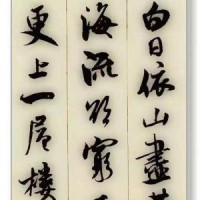 白日依山盡
海流欲窮
更上一層樓